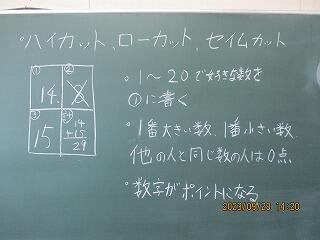 ・ハイカット、ローカット、セイムカット
① ②
14 8
③ 計
15 14
+15
29
・1～20で好きな数を
①に書く
・1番大きい数、1番小さい数、
他の人と同じ数の人は0点
・数字がポイントになる
2023/09/29 14:20